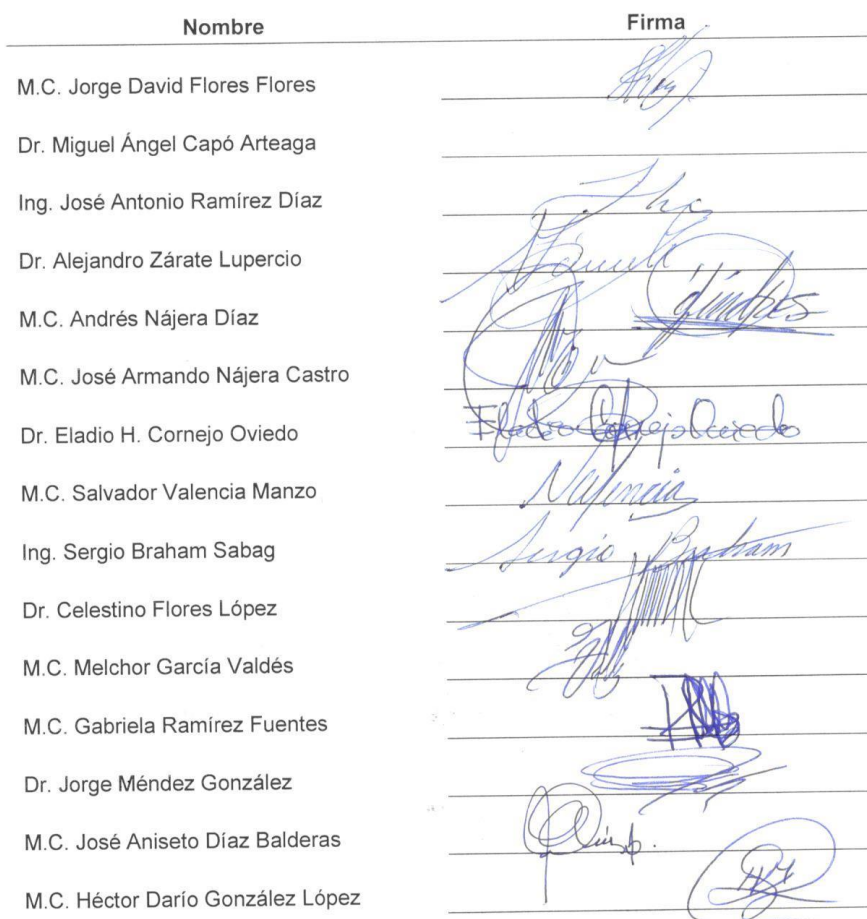 Nombre Firma
M.C. Jorge David Flores Flores
Dr. Miguel Ángel Capó Arteaga
Ing. José Antonio Ramírez Díaz
Dr. Alejandro Zárate Lupercio
M.C. Andrés Nájera Díaz
M.C. José Armando Nájera Castro
Dr. Eladio H. Cornejo Oviedo Eladio Cornejo Oviedo
M.C. Salvador Valencia Manzo Valencia
Ing. Sergio Braham Sabag Sergio Braham
Dr. Celestino Flores López
M.C. Melchor García Valdés
M.C. Gabriela Ramírez Fuentes
Dr. Jorge Méndez González
M.C. José Aniseto Díaz Balderas
M.C. Héctor Darío González López